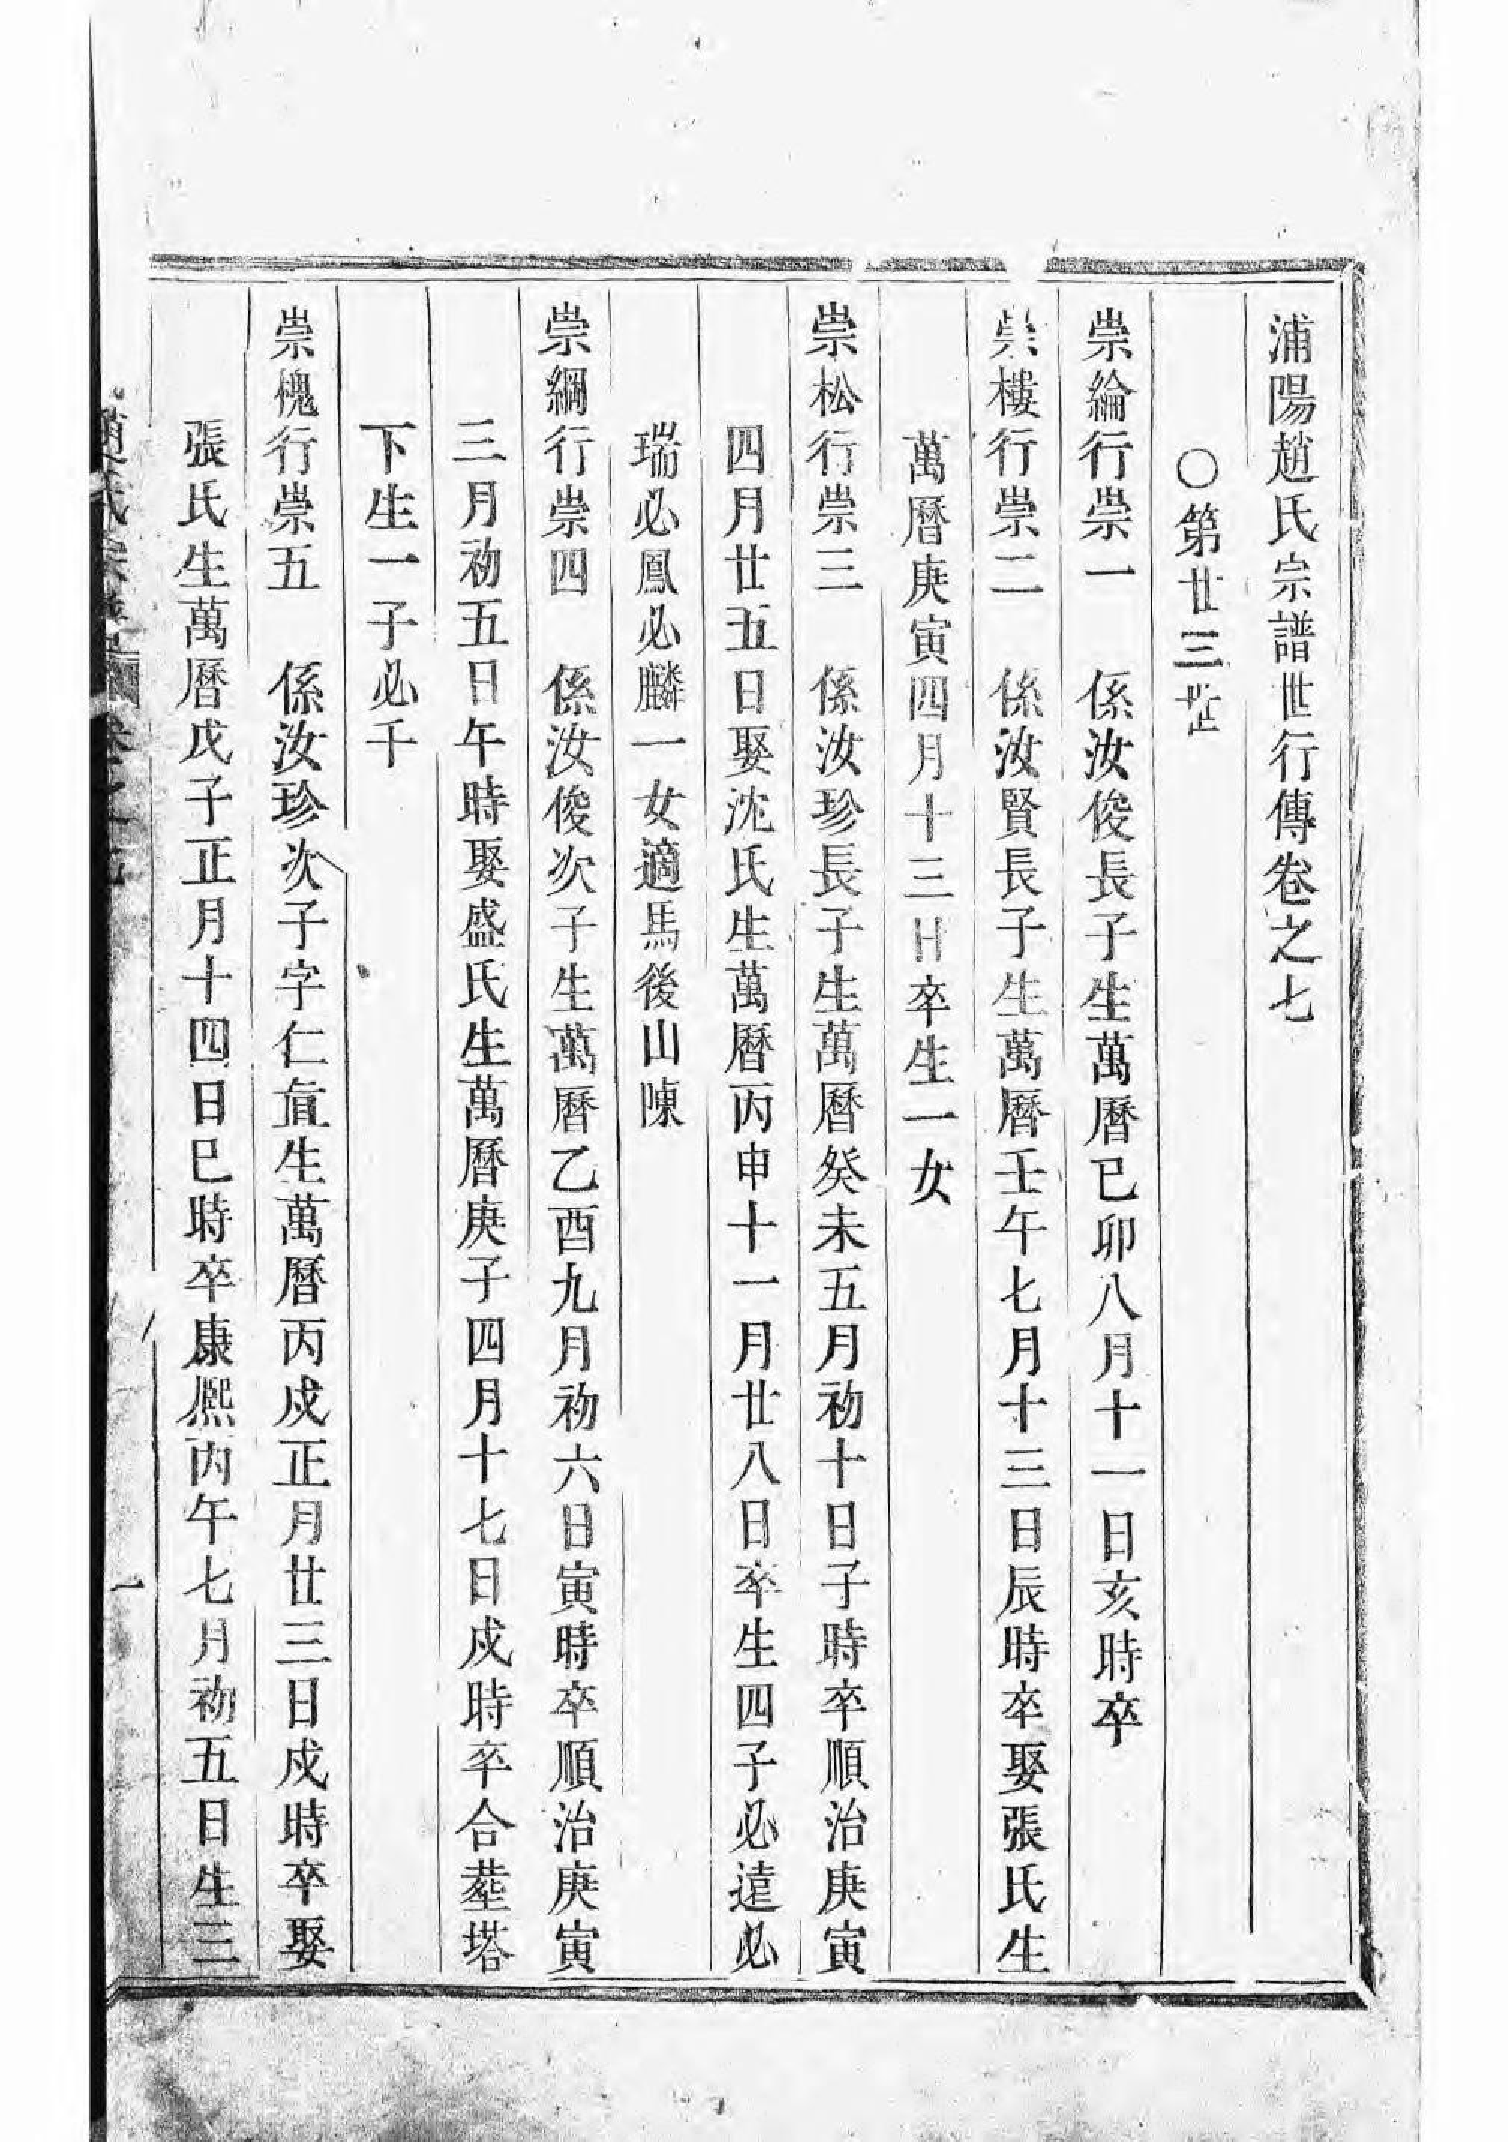 浦陽趙氏宗譜世行傳卷之七
○第廿三世
崇綸行崇一　係汝俊長子生萬曆己卯八月十一日亥時卒
崇樓行崇二　係汝賢長子生萬曆壬午七月十三日辰時卒娶張氏生
萬曆庚寅四月十三日卒生一女
崇松行崇三　係汝珍長子生萬曆癸未五月初十日子時卒順治庚寅
四月廿五日娶沈氏生萬曆丙申十一月廿八日卒生四子必達必
瑞必鳳必麟一女適馬後山陳
崇綱行崇四　係汝俊次子生萬曆乙酉九月初六日寅時卒順治庚寅
三月初五日午時娶盛氏生萬曆庚子四月十七日戌時卒合塟塔
下生一子必千
崇槐行崇五　係汝珍次子字仁宜生萬曆丙戌正月廿三日戌時卒娶
張氏生萬曆戊子正月十四日巳時卒康熙丙午七月初五日生三
趙氏宗譜　卷之七　一